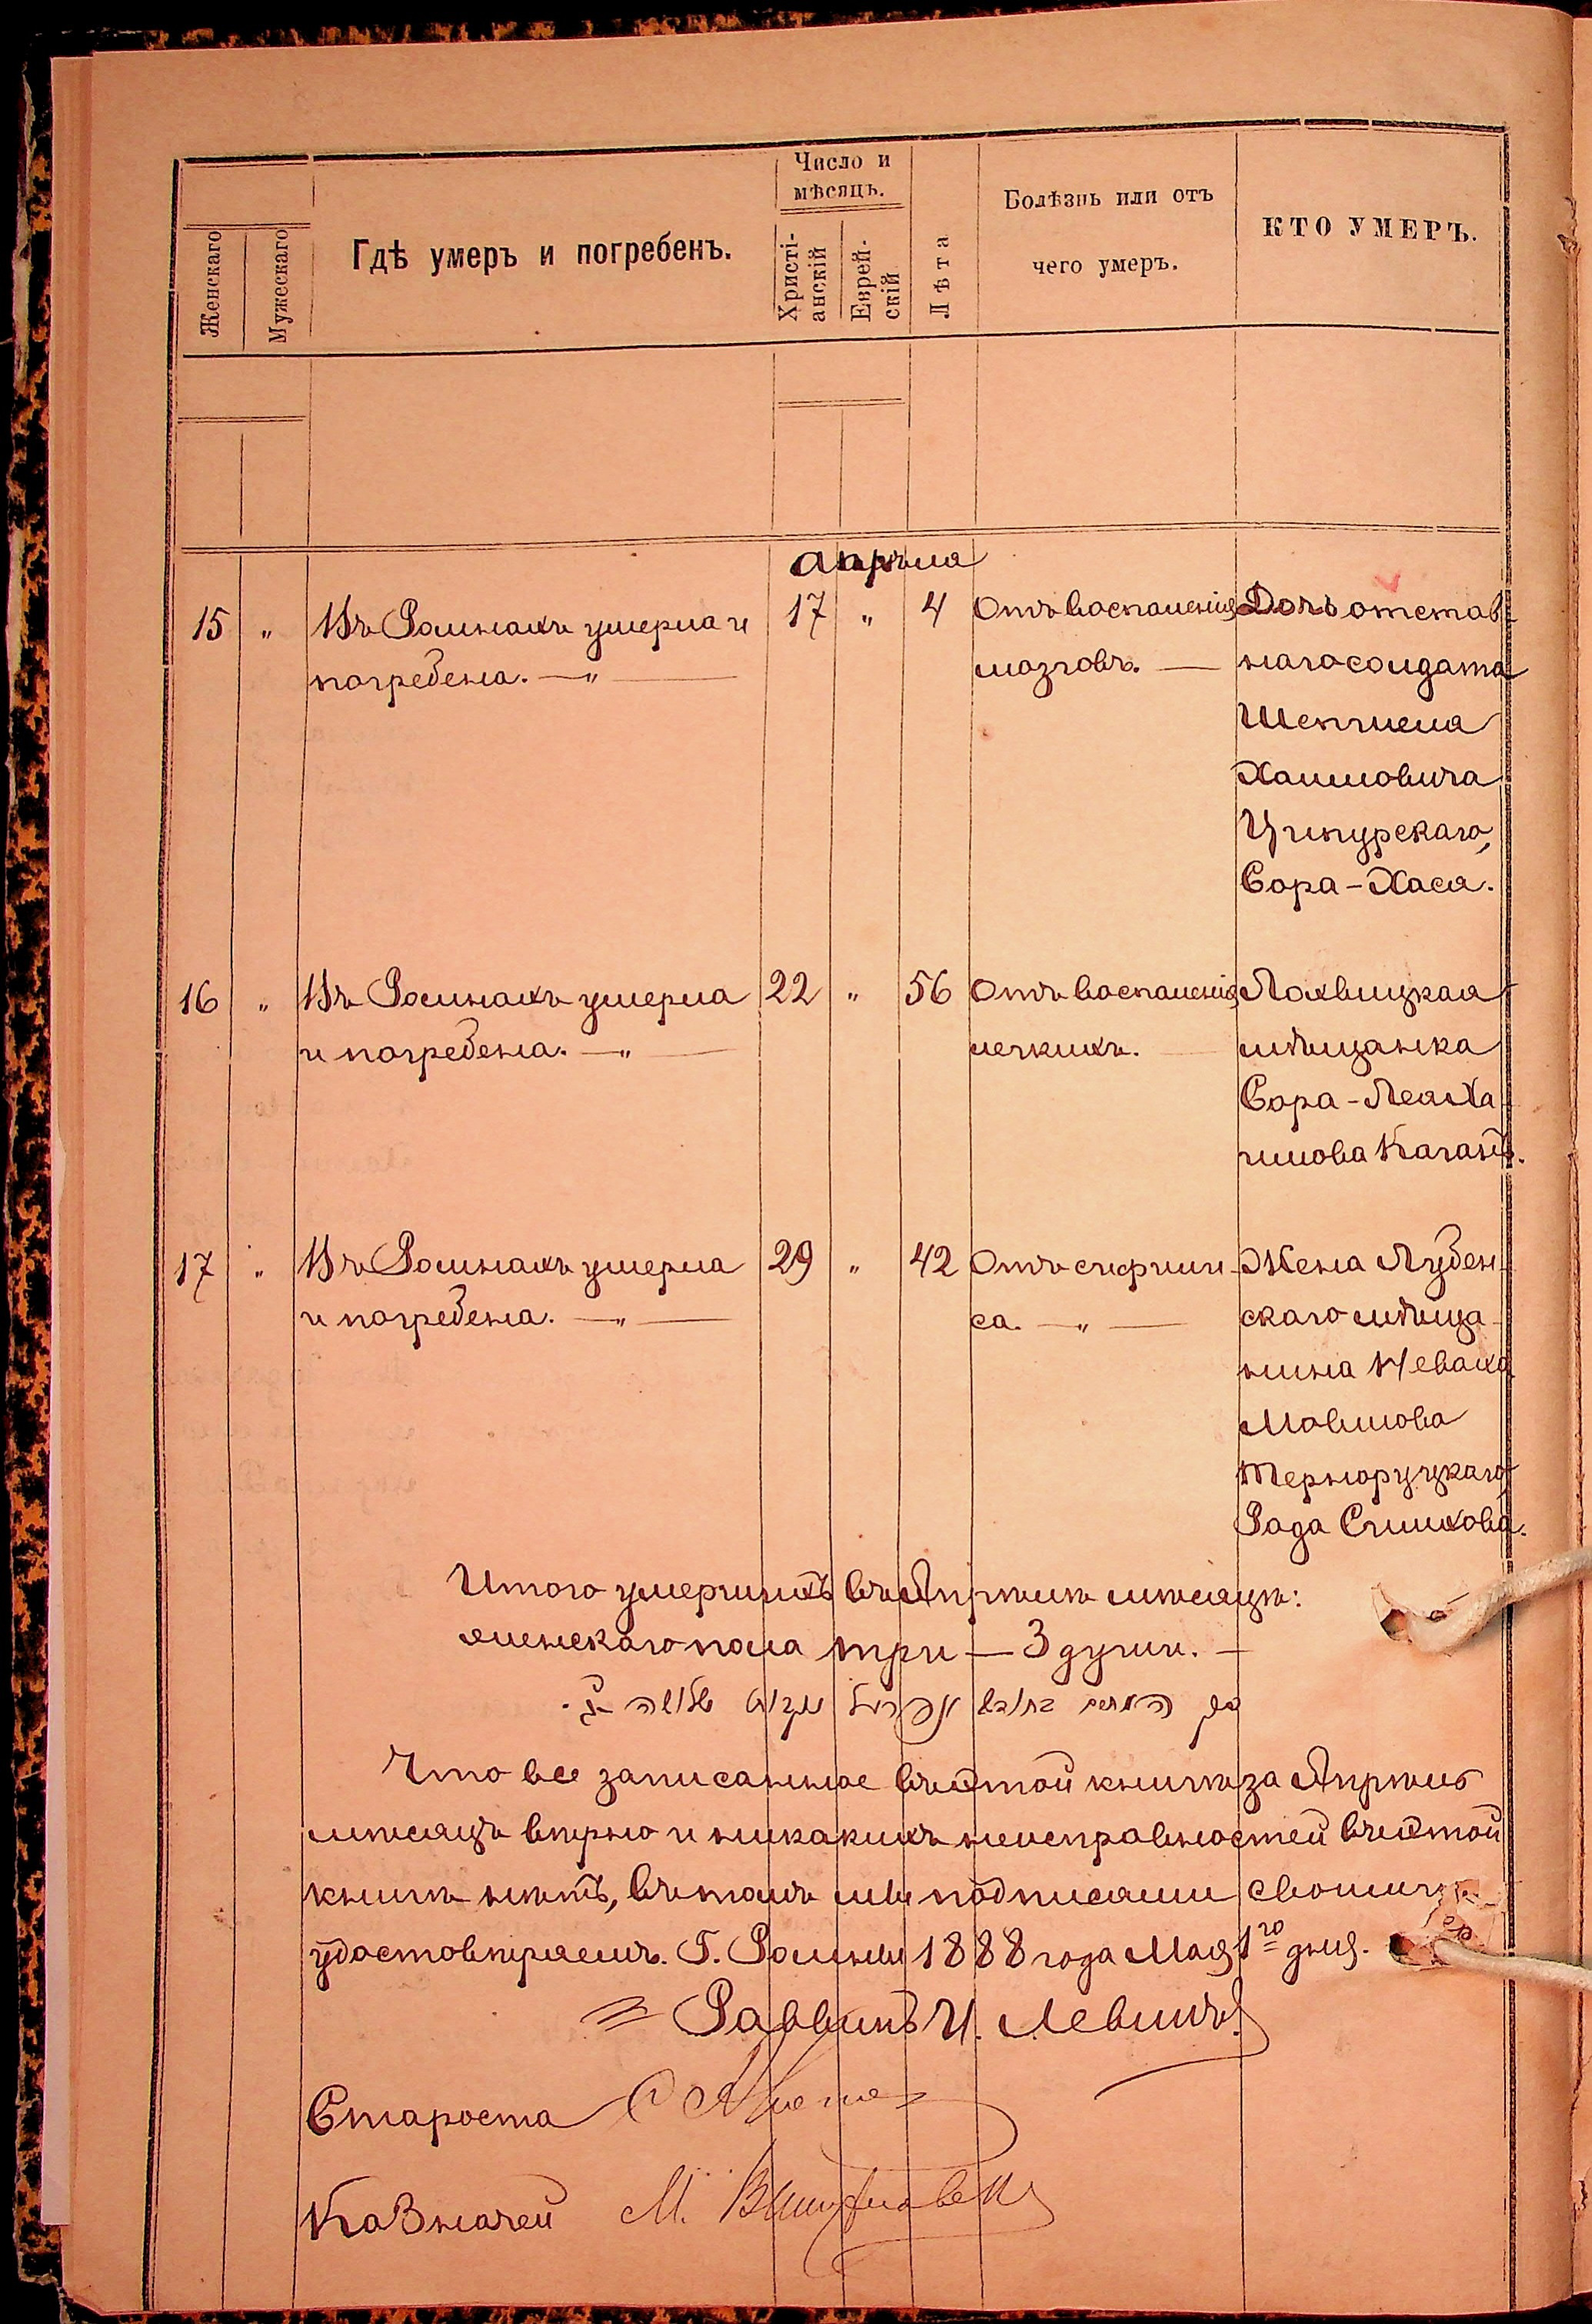 Женскаго
Мужескаго
Гдѣ умеръ и погребенъ.
Число и
мѣсяцъ.
Христі-
анскій
Еврей-
скій
Лѣта
Болѣзнь или отъ
чего умеръ.
КТО УМЕРЪ.
апрѣля
15 " Въ Ромнахъ умерла и 17 " 4 Отъ воспаленія Дочь отстав-
погребена. — " — мозговъ. — наго солдата
Шепшеля
Хаимовича
Ципурскаго,
Сора-Хася.
16 " Въ Ромнахъ умерла 22 " 56 Отъ воспаленія Лохвицкая
и погребена. — " — легкихъ. — мѣщанка
Сора-Лея Ха
имова Каганъ.
17 " Въ Ромнахъ умерла 29 " 42 Отъ сифили- Жена Лубен-
и погребена. — " — са. — " — скаго мѣща-
нина Неваха
Мовшова
Терноруцкаго,
Рада Симхова.
Итого умершихъ въ Апрѣлѣ мѣсяцѣ:
женскаго пола три — 3 души. —
Что все записанное въ этой книгѣ за Апрѣль
мѣсяцъ вѣрно и никакихъ неисправностей въ этой
книгѣ нѣтъ, въ томъ мы подписями своими
удостовѣряемъ. Г. Ромны 1888 года Мая 1го дня.
Раввинъ И. Левинъ
Староста
Казначей М.